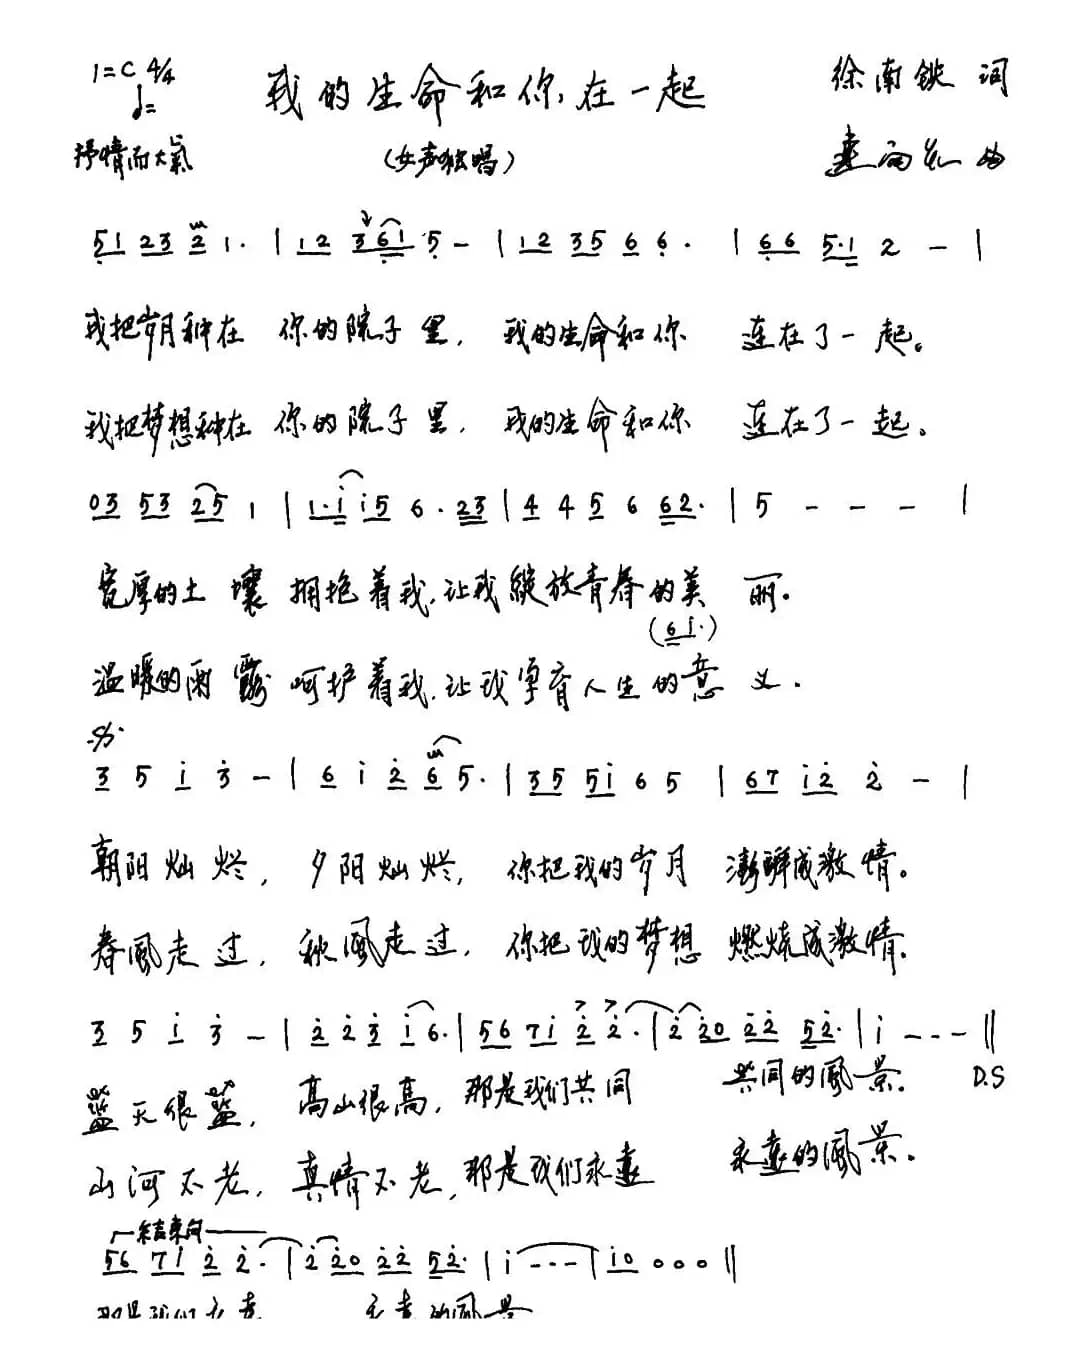 1=C 4/4 我的生命和你在一起 徐南铁 词
♩=
抒情而大氣 (女声独唱) 曲
51 23 2 1· | 12 361 5 - | 12 35 6 6· | 66 5·1 2 - |
我把岁月种在 你的院子里, 我的生命和你 连在了一起。
我把梦想种在 你的院子里, 我的生命和你 连在了一起。
03 53 25 1 | 1·i i5 6·23 | 4 4 5 6 62· | 5 - - - |
宽厚的土壤 拥抱着我,让我綻放青春的美丽.
(6i·)
温暖的雨露 呵护着我,让我孕育人生的意义.
3 5 i 3 - | 6 i 2 6 5· | 35 5i 6 5 | 67 i2 2 - |
朝阳灿烂, 夕阳灿烂, 你把我的岁月 澎湃成激情。
春風走过, 秋風走过, 你把我的梦想 燃烧成激情.
3 5 i 3 - | 2 2 3 i 6· | 56 7i 2 2· | 2 20 22 52· | i - - - ||
蓝天很蓝, 高山很高, 那是我们共同 共同的風景. D.S
山河不老, 真情不老, 那是我们永遠 永遠的風景.
结束句
56 7i 2 2· | 2 20 22 52· | i - - - | i0 0 0 0 ||
那是我们永遠 永遠的风景